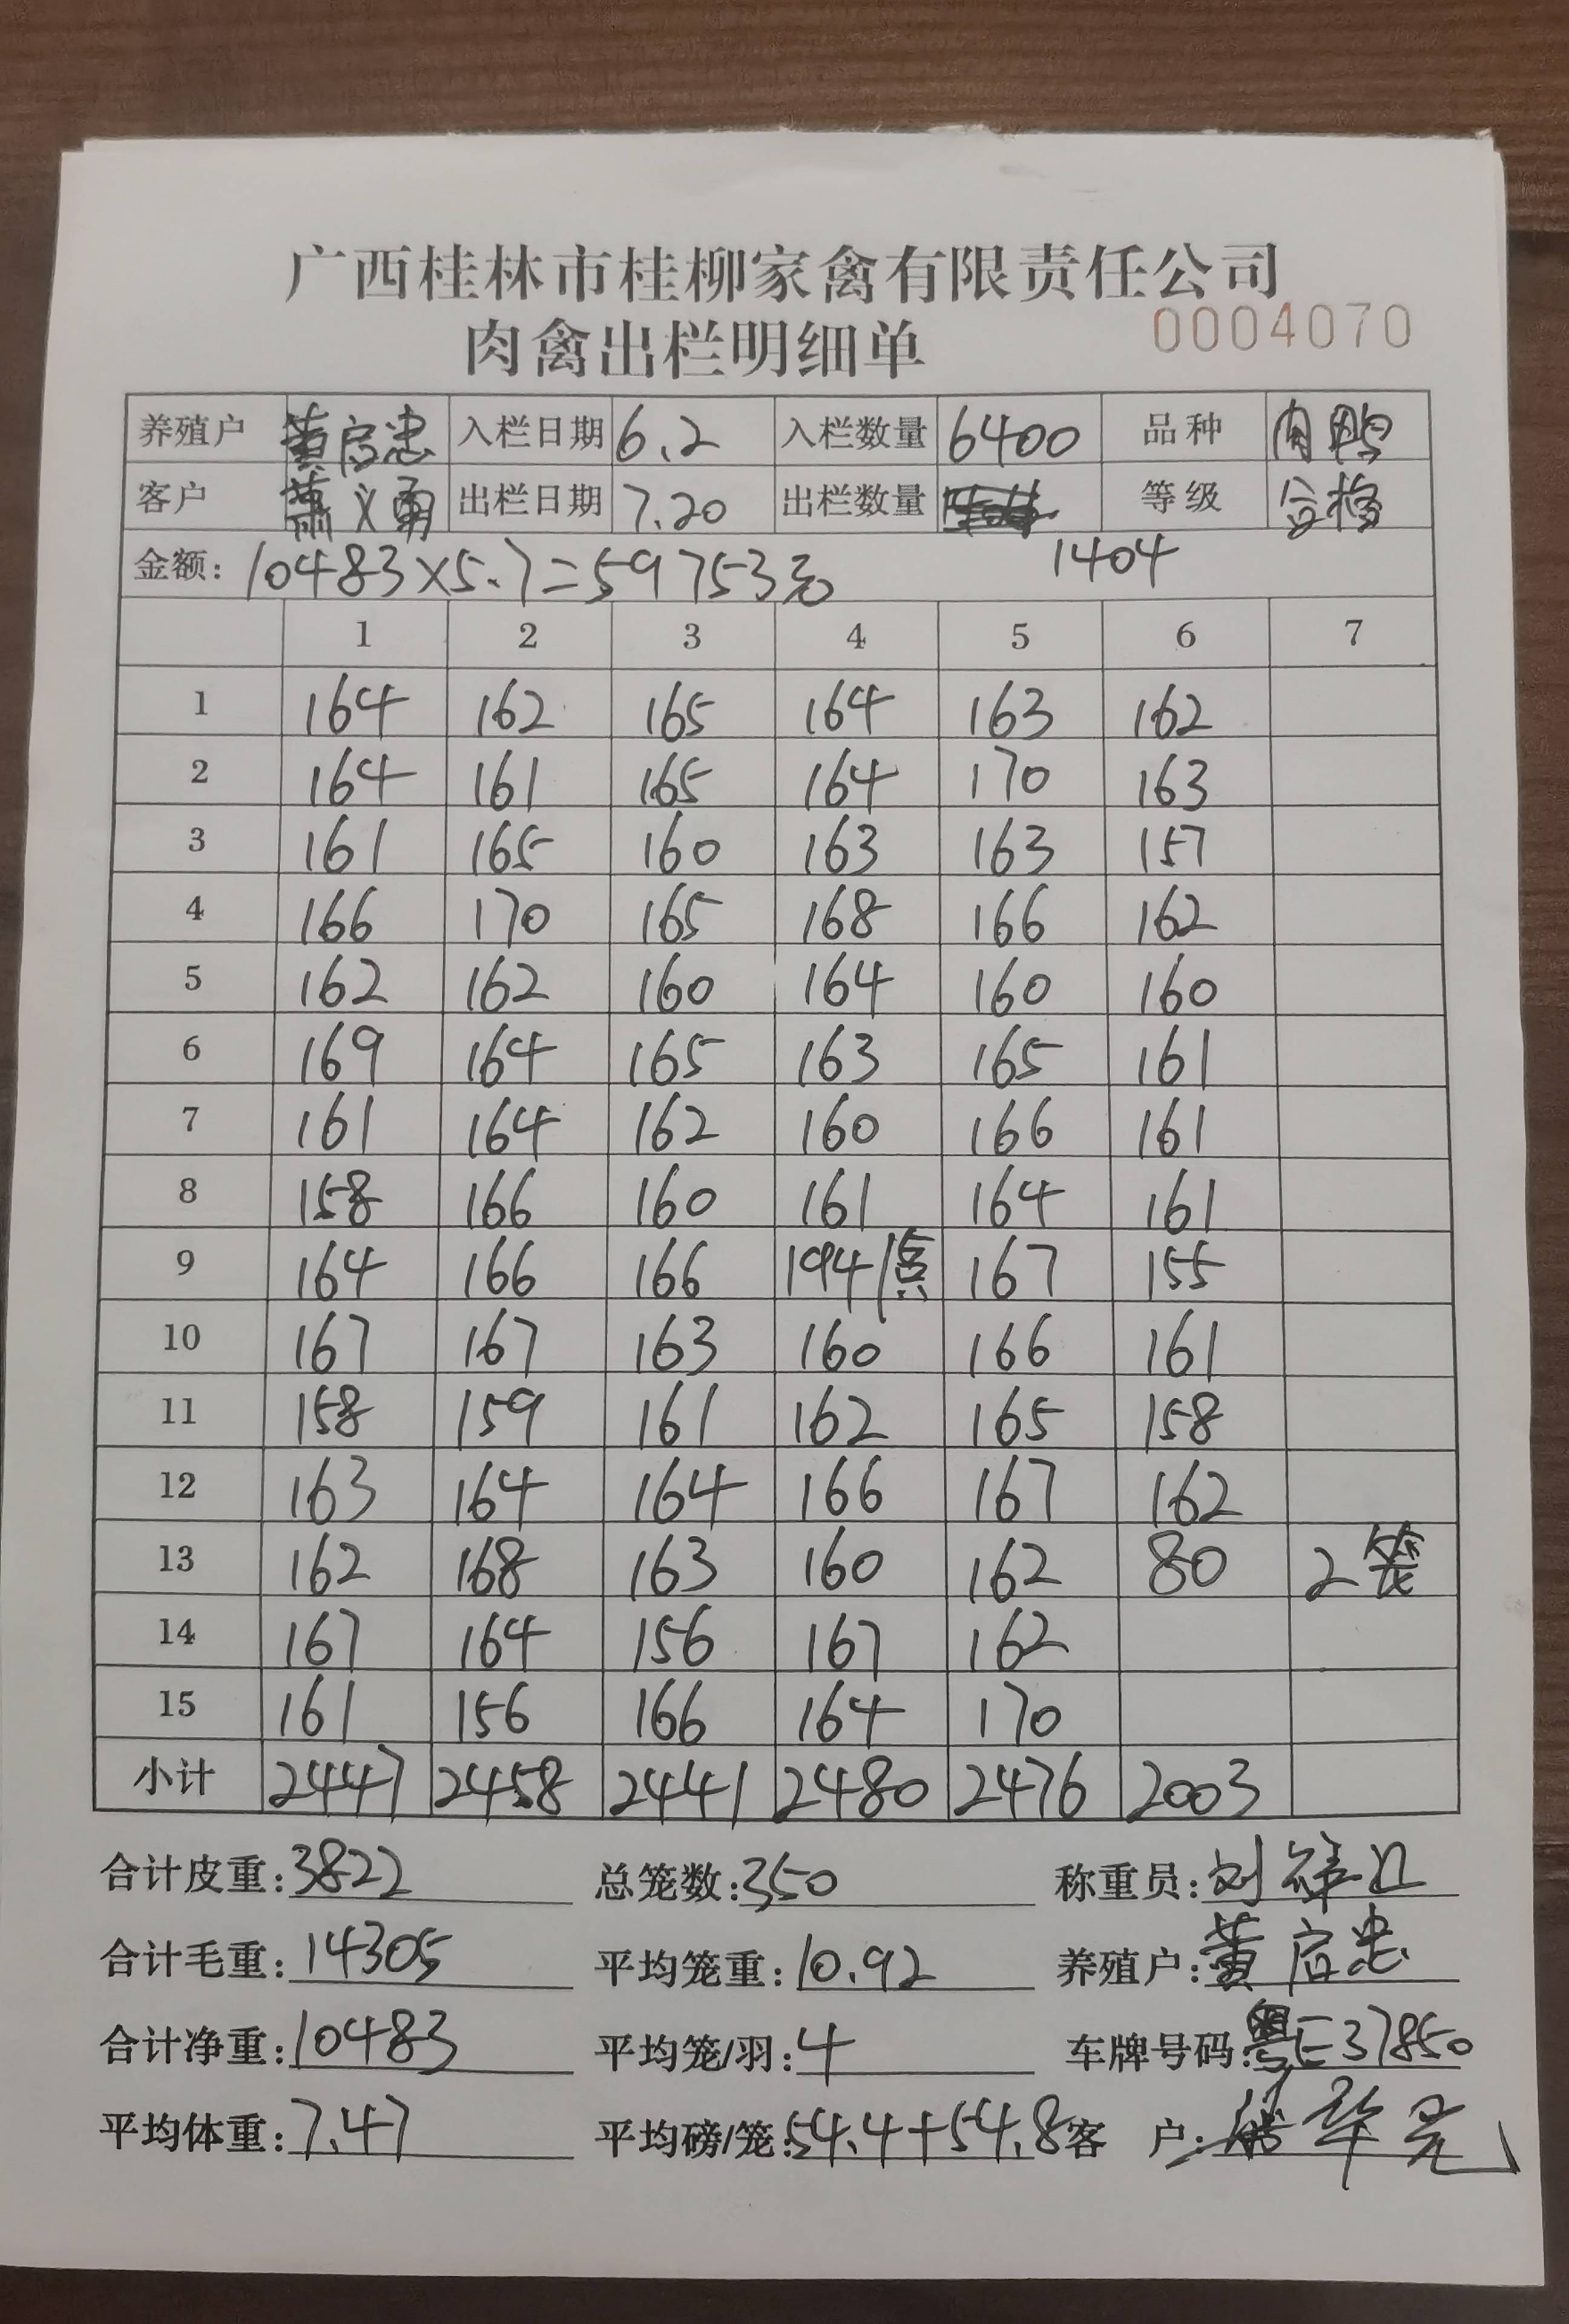 广西桂林市桂柳家禽有限责任公司
肉禽出栏明细单 0004070
养殖户 黄启忠 入栏日期 6.2 入栏数量 6400 品种 肉鸭
客户 萧义勇 出栏日期 7.20 出栏数量 等级 合格
金额: 10483×5.7=59753元 1404
1 2 3 4 5 6 7
1 164 162 165 164 163 162
2 164 161 165 164 170 163
3 161 165 160 163 163 157
4 166 170 165 168 166 162
5 162 162 160 164 160 160
6 169 164 165 163 165 161
7 161 164 162 160 166 161
8 158 166 160 161 164 161
9 164 166 166 194/点 167 155
10 167 167 163 160 166 161
11 158 159 161 162 165 158
12 163 164 164 166 167 162
13 162 168 163 160 162 80 2笼
14 167 164 156 167 162
15 161 156 166 164 170
小计 2447 2458 2441 2480 2476 2003
合计皮重: 3822 总笼数: 350 称重员: 刘
合计毛重: 14305 平均笼重: 10.92 养殖户: 黄启忠
合计净重: 10483 平均笼/羽: 4 车牌号码: 粤E37850
平均体重: 7.47 平均磅/笼: 54.4+54.8 客户: